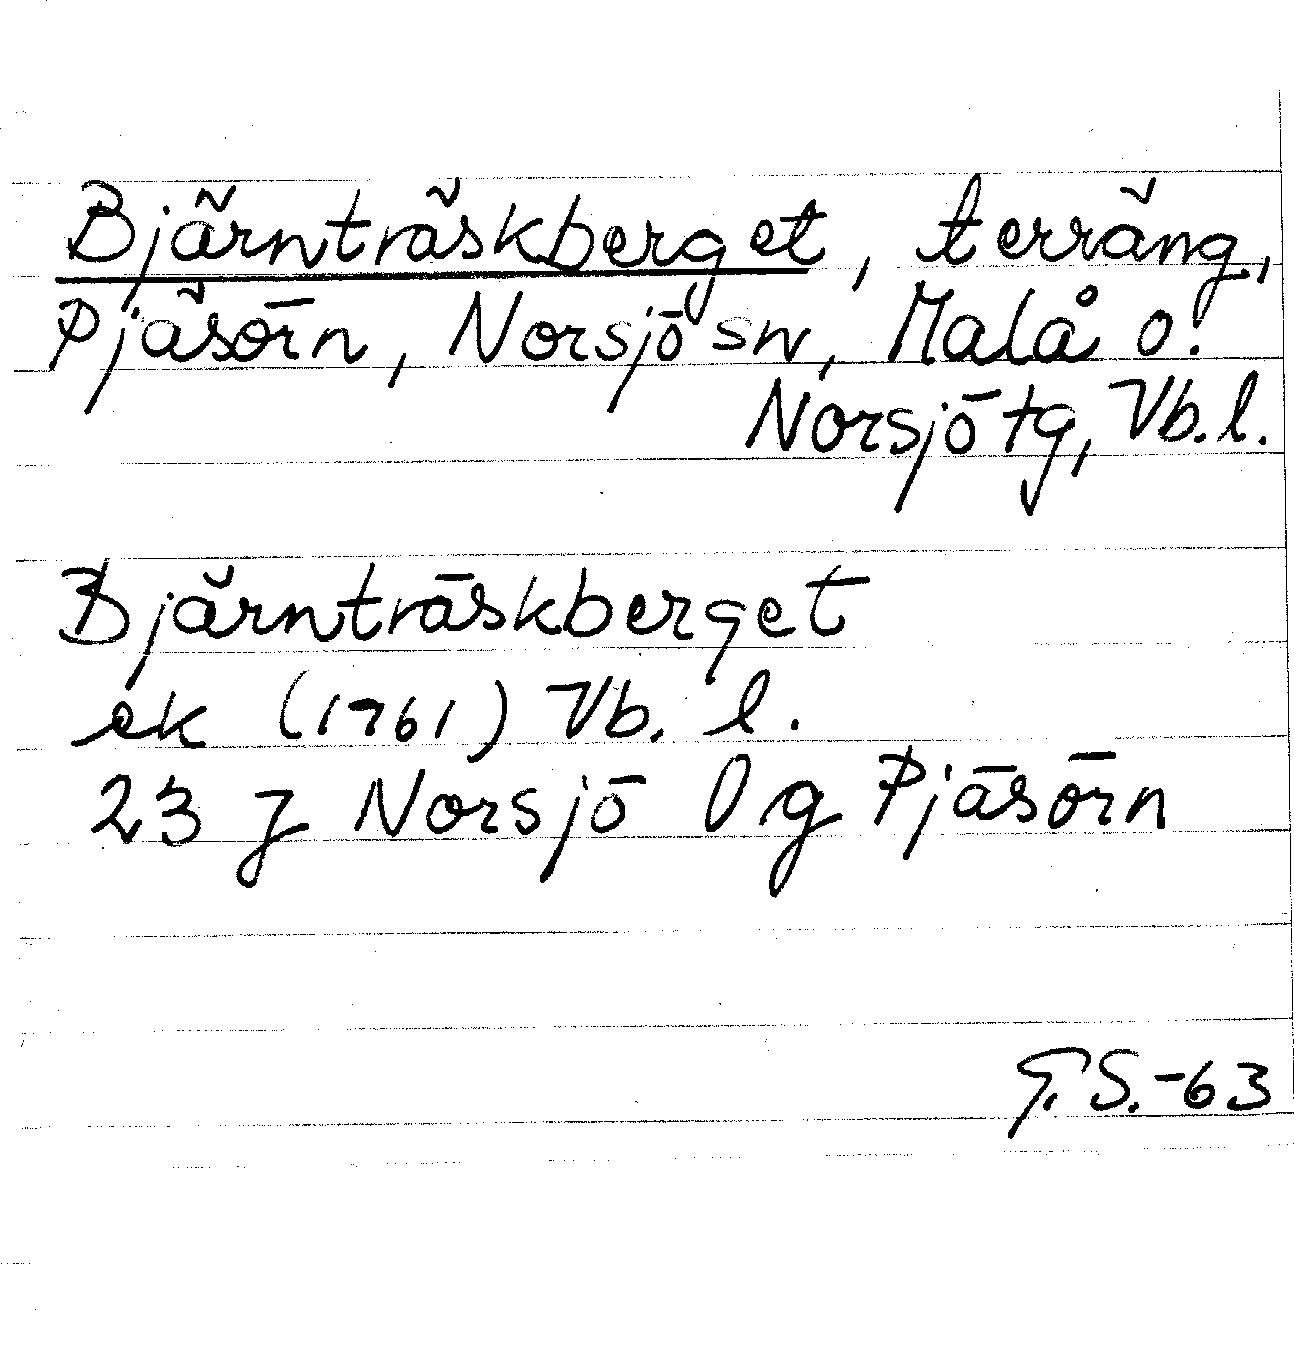 Bjärnträskberget, terräng,
Pjäsörn, Norsjö sn, Malå o.
Norsjö tg, Vb. l.
Bjärnträskberget
ek (1761) Vb. l.
23 J Norsjö 0 g Pjäsörn
G. S. -63